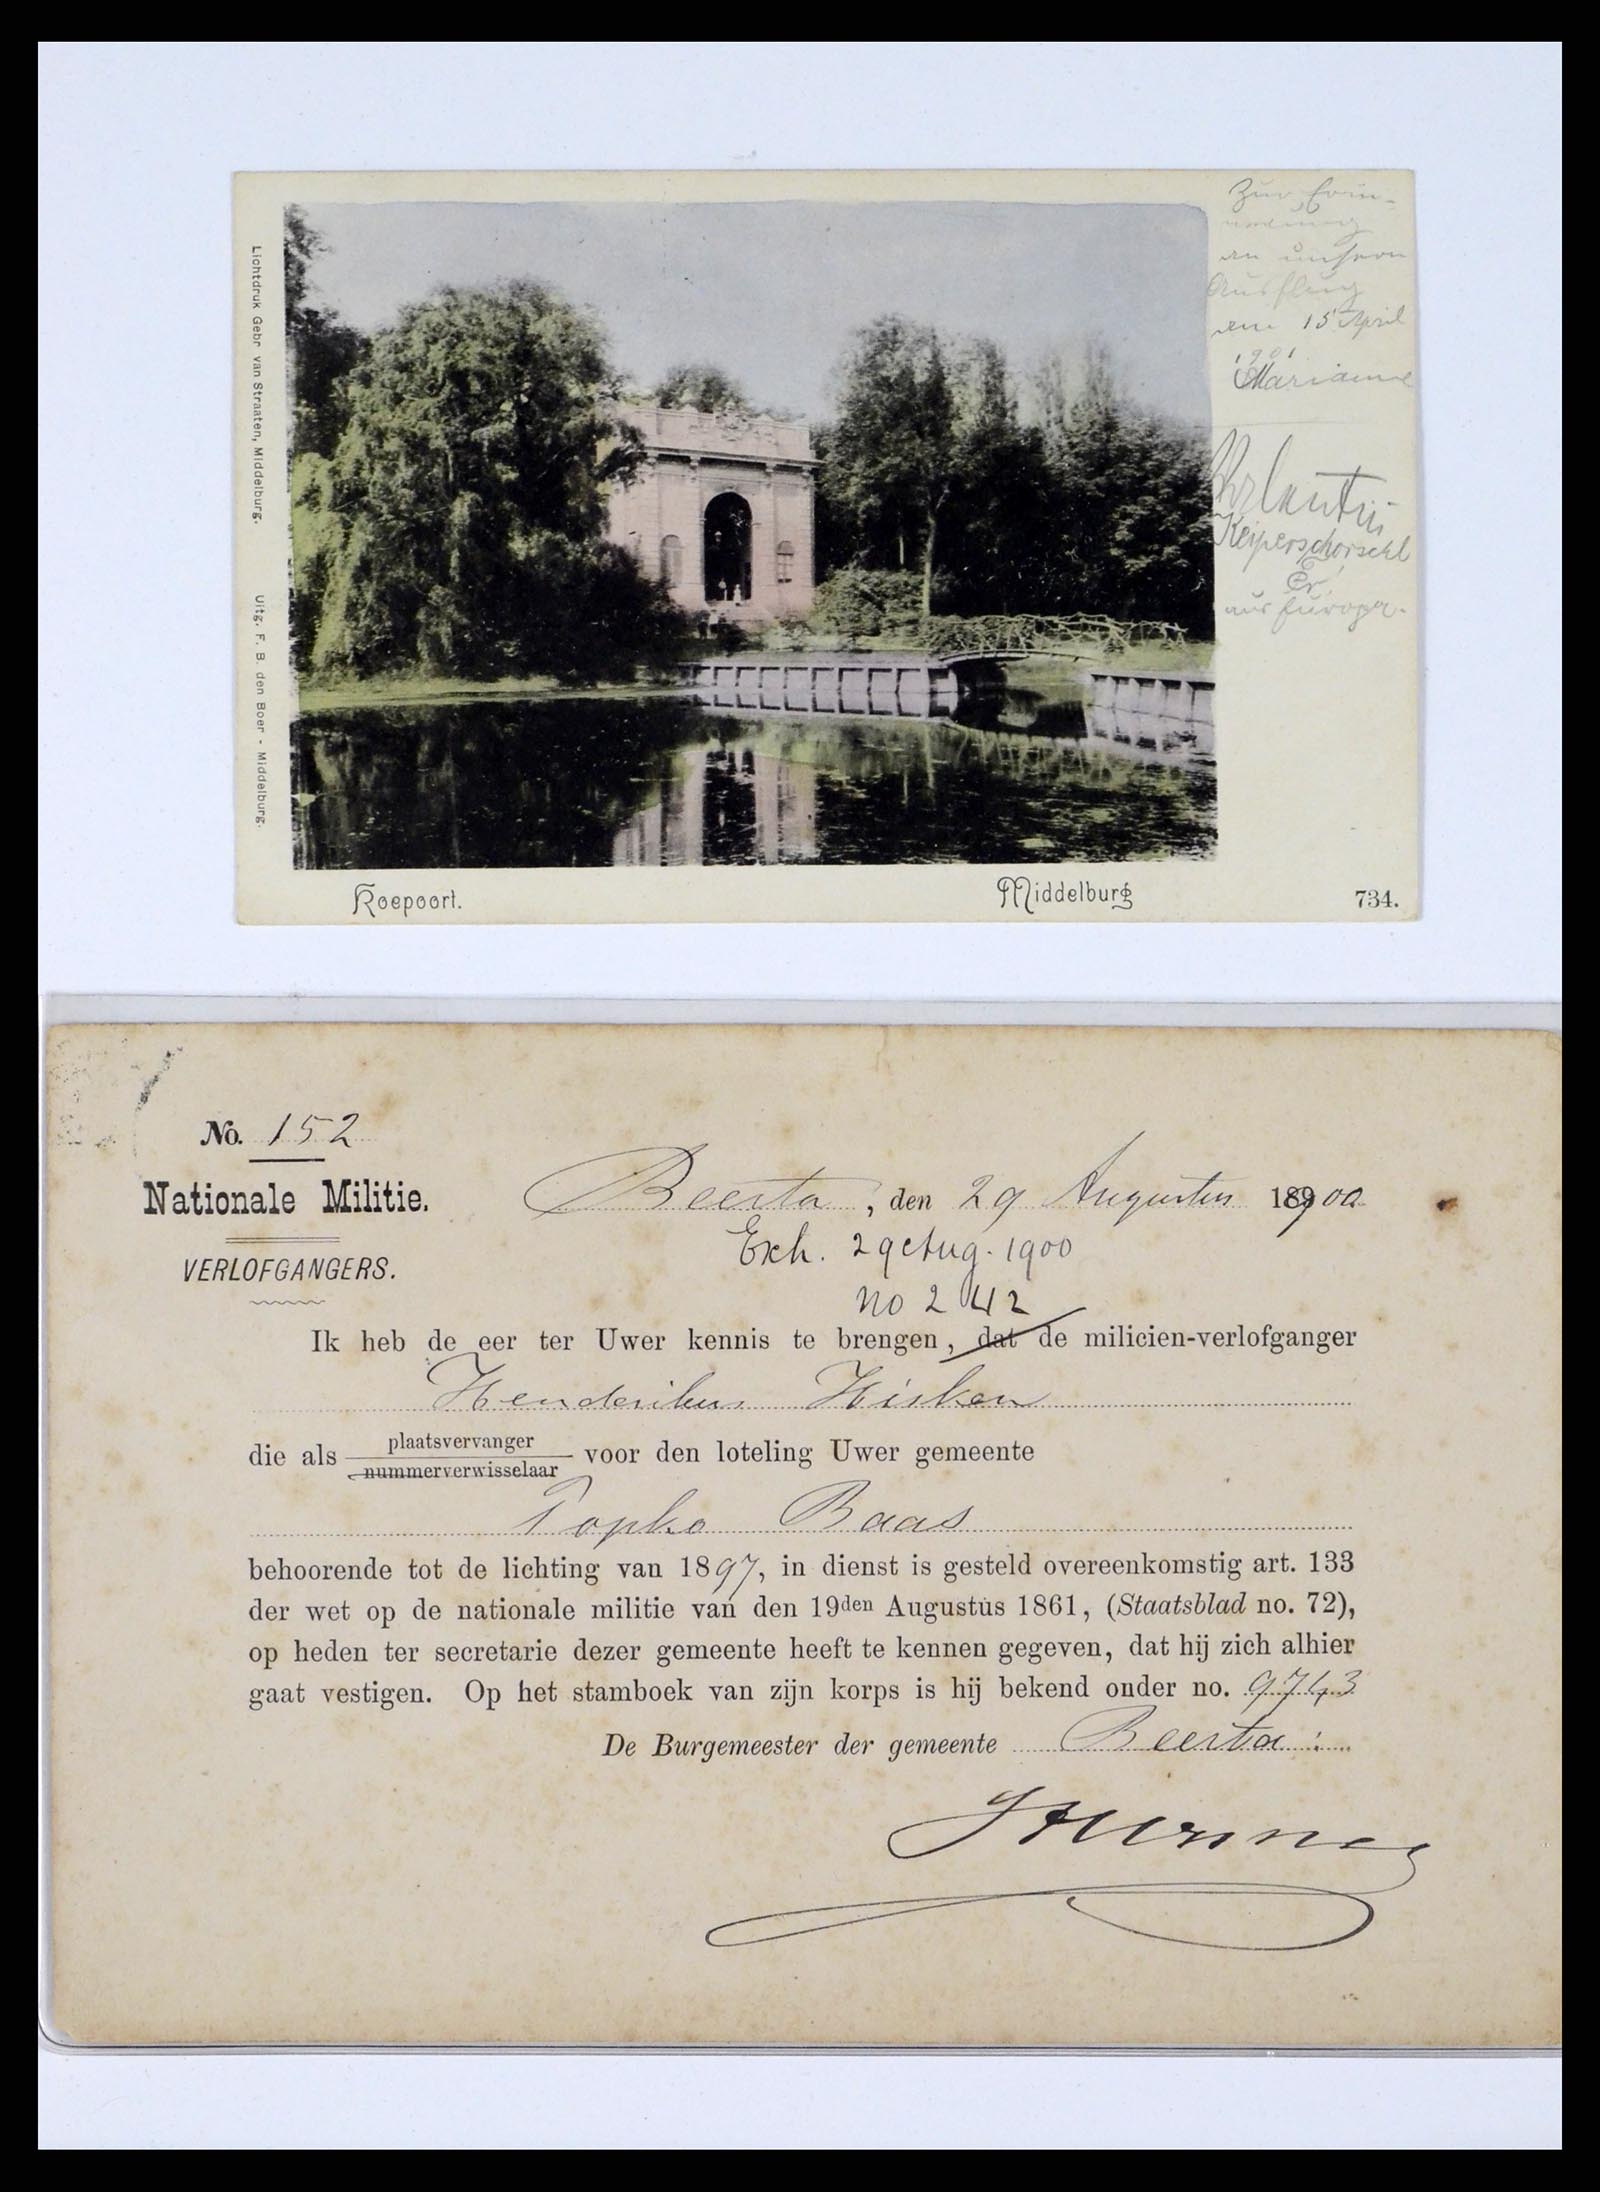 Lichtdruk Gebr van Straaten, Middelburg.
Uitg. F. B. den Boer - Middelburg.
Zur Erin-
nerung
an unsern
Ausflug
am 15 April
1901
Marianne
Er
aus Europa.
Koepoort.
Middelburg
734.
No. 152
Nationale Militie.
VERLOFGANGERS.
Beerta, den 29 Augustus 1900
Exh. 29 Aug. 1900
no 242
Ik heb de eer ter Uwer kennis te brengen, dat de milicien-verlofganger
Henderikus Hisken
die als plaatsvervanger
nummerverwisselaar voor den loteling Uwer gemeente
Topko Baas
behoorende tot de lichting van 1897, in dienst is gesteld overeenkomstig art. 133
der wet op de nationale militie van den 19den Augustus 1861, (Staatsblad no. 72),
op heden ter secretarie dezer gemeente heeft te kennen gegeven, dat hij zich alhier
gaat vestigen. Op het stamboek van zijn korps is hij bekend onder no. 9743
De Burgemeester der gemeente Beerta: